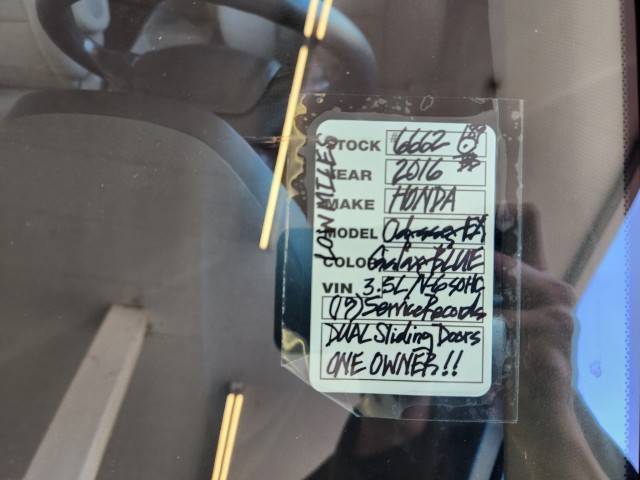 LOW MILES
STOCK # 6662
YEAR 2016
MAKE HONDA
MODEL Odyssey EX
COLOR BLUE
VIN 3.5L/V-6 SOHC
Service Records
DUAL Sliding Doors
ONE OWNER!!